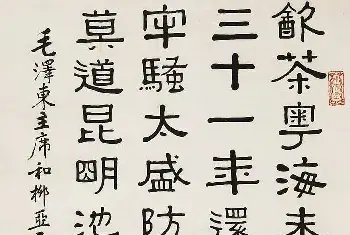 飲茶粵海未
三十一年還
牢騷太盛防
莫道昆明池
毛澤東主席和柳亞